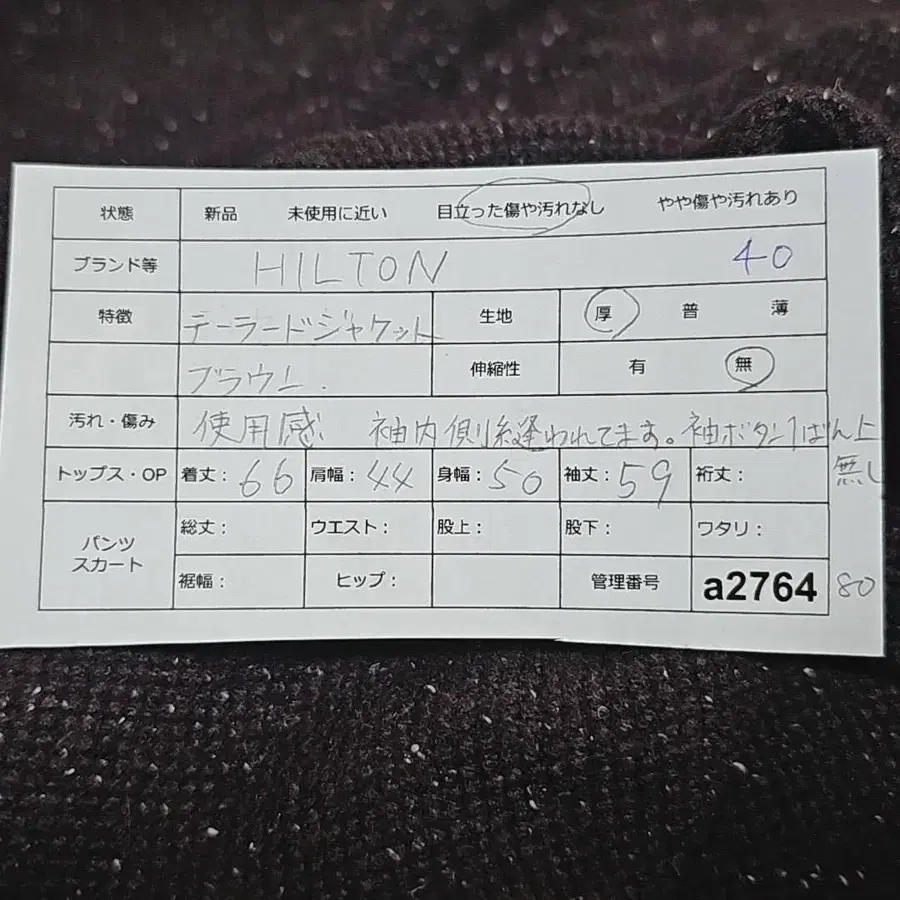 状態 新品 未使用に近い 目立った傷や汚れなし やや傷や汚れあり
ブランド等 HILTON 40
特徴 テーラードジャケット 生地 厚 普 薄
ブラウン. 伸縮性 有 無
汚れ・傷み 使用感 袖内側糸縫われてます。袖ボタン1ばん上
無し
トップス・OP 着丈:66 肩幅:44 身幅:50 袖丈:59 裄丈:
パンツ スカート 総丈: ウエスト: 股上: 股下: ワタリ:
裾幅: ヒップ: 管理番号 a2764 80